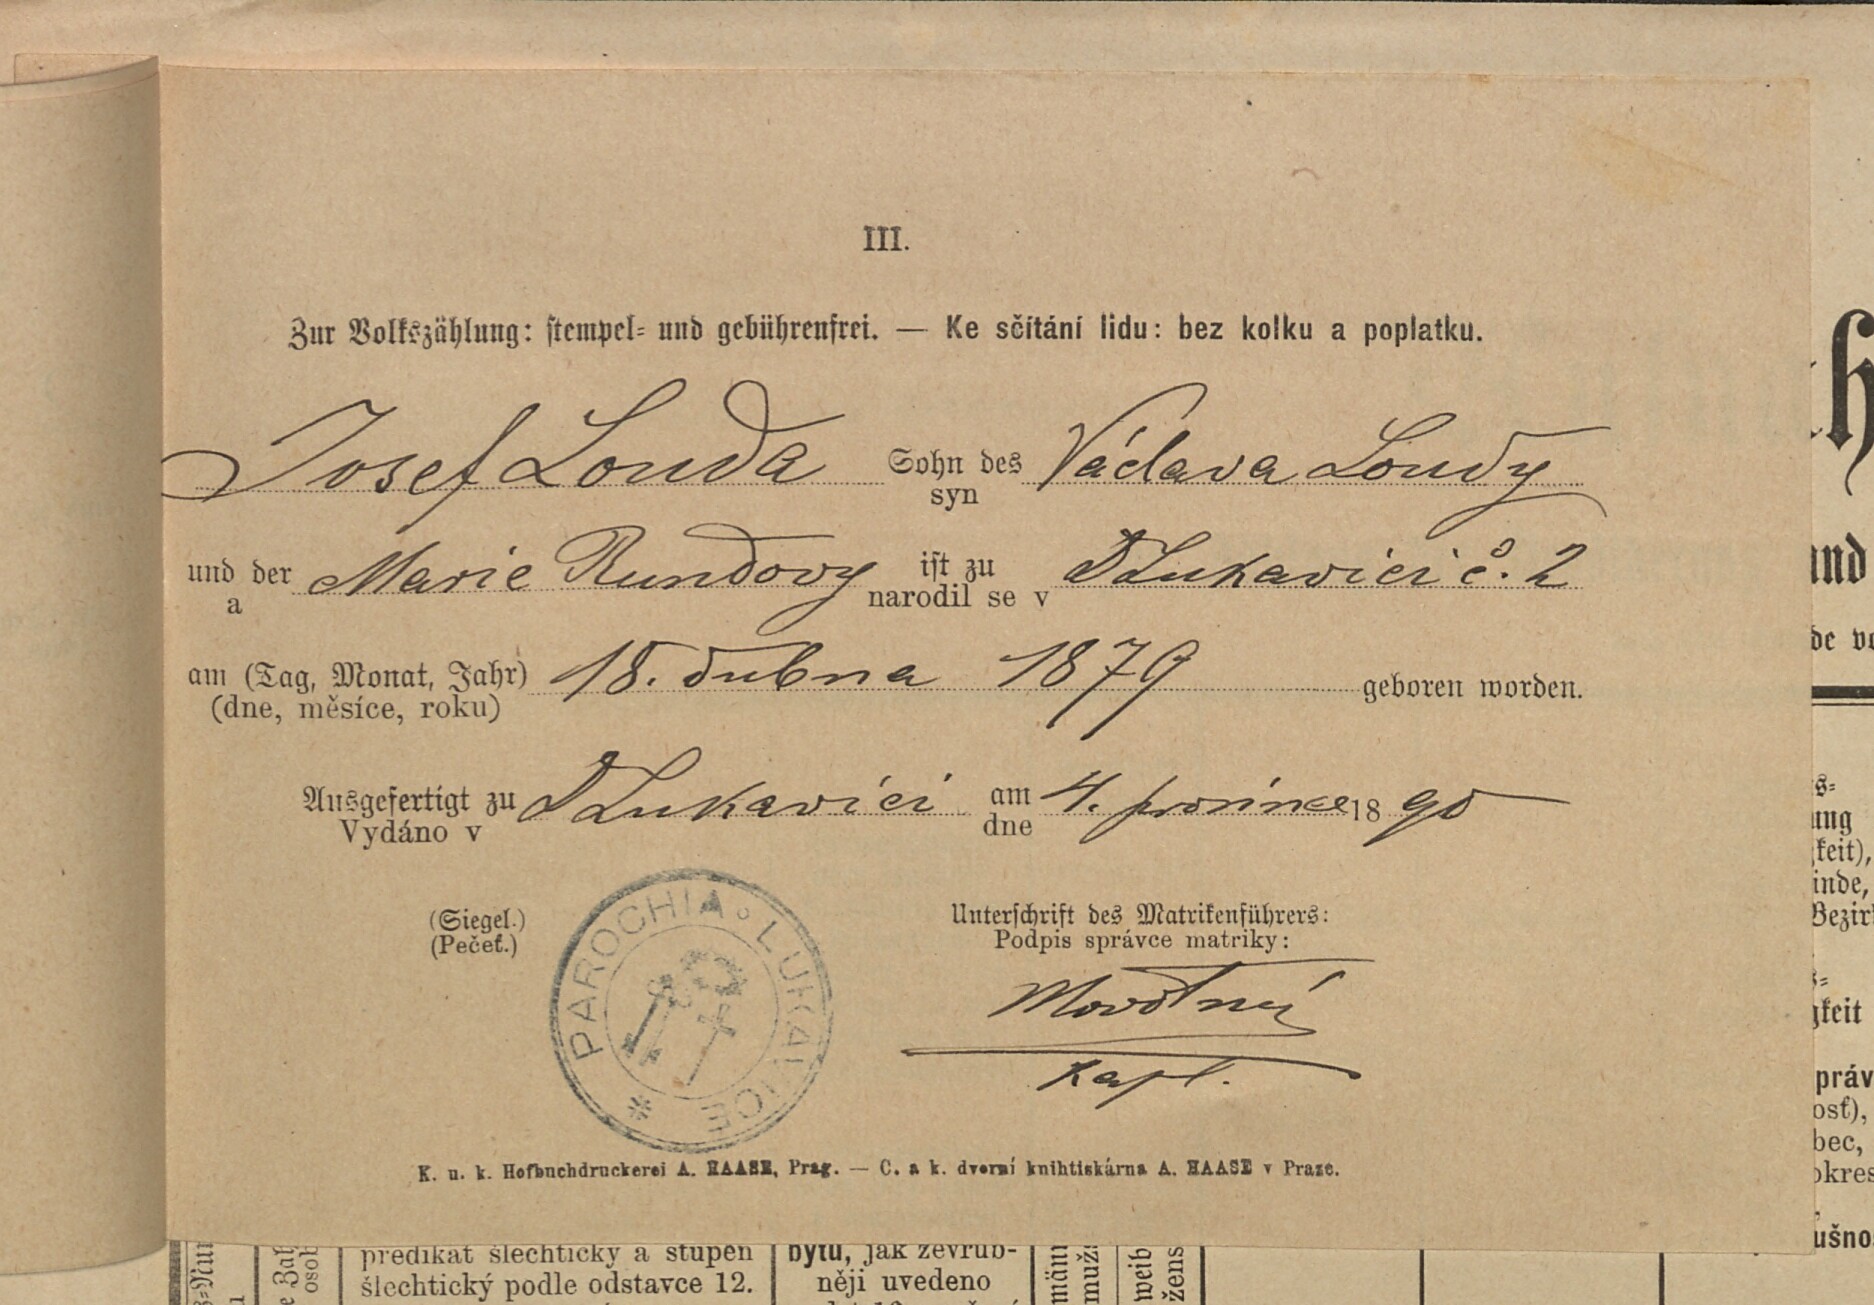 III.
Zur Volkszählung: stempel- und gebührenfrei. — Ke sčítání lidu: bez kolku a poplatku.
Josef Louda Sohn des Václava Loudy
syn
und der Marie Rundovy ist zu DLukavici č. 2
a narodil se v
am (Tag, Monat, Jahr) 18. dubna 1879 geboren worden.
(dne, měsíce, roku)
Ausgefertigt zu DLukavici am 4. prosince 1890
Vydáno v dne
(Siegel.) Unterschrift des Matrikenführers:
(Pečeť.) Podpis správce matriky:
PAROCHIA LUKAVICE
Novotný
kapl.
K. u. k. Hofbuchdruckerei A. HAASE, Prag. — C. a k. dvorní knihtiskárna A. HAASE v Praze.
predikát šlechtický a stupeň bytu, jak zevrub-
šlechtický podle odstavce 12. něji uvedeno